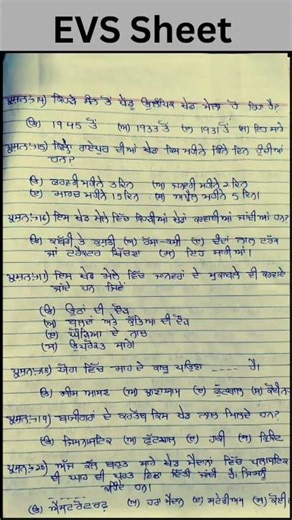 EVS Sheet
ਪ੍ਰਸ਼ਨ:-14) ਕਿਹੜੇ ਸੰਨ ਤੋਂ ਪੇਂਡੂ ਓਲੰਪਿਕ ਖੇਡ ਮੇਲਾ ਹੋ ਰਿਹਾ ਹੈ?
(ੳ) 1945 ਤੋਂ (ਅ) 1933 ਤੋਂ (ੲ) 1931 ਤੋਂ (ਸ) ਇਹ ਸਾਰੇ
ਪ੍ਰਸ਼ਨ:-15) ਕਿਲ੍ਹਾ ਰਾਏਪੁਰ ਦੀਆਂ ਖੇਡਾਂ ਕਿਸ ਮਹੀਨੇ ਕਿੰਨੇ ਦਿਨ ਹੁੰਦੀਆਂ
ਹਨ?
(ੳ) ਫਰਵਰੀ ਮਹੀਨੇ 3 ਦਿਨ (ਅ) ਜਨਵਰੀ ਮਹੀਨੇ 2 ਦਿਨ
(ੲ) ਮਾਰਚ ਮਹੀਨੇ 15 ਦਿਨ (ਸ) ਅਪ੍ਰੈਲ ਮਹੀਨੇ 5 ਦਿਨ।
ਪ੍ਰਸ਼ਨ:-16) ਇਸ ਖੇਡ ਮੇਲੇ ਵਿੱਚ ਕਿਹੜੀਆਂ ਖੇਡਾਂ ਕਰਵਾਈਆਂ ਜਾਂਦੀਆਂ ਹਨ?
(ੳ) ਕਬੱਡੀ ਤੇ ਕੁਸ਼ਤੀ (ਅ) ਰੱਸਾ-ਕਸ਼ੀ (ੲ) ਦੰਦਾਂ ਨਾਲ ਟਰੱਕ
ਜਾਂ ਟਰੈਕਟਰ ਖਿੱਚਣਾ (ਸ) ਇਹ ਸਾਰੀਆਂ।
ਪ੍ਰਸ਼ਨ:-17) ਇਸ ਖੇਡ ਮੇਲੇ ਵਿੱਚ ਜਾਨਵਰਾਂ ਦੇ ਮੁਕਾਬਲੇ ਵੀ ਕਰਵਾਏ
ਜਾਂਦੇ ਹਨ ਜਿਵੇਂ
(ੳ) ਊਠਾਂ ਦੀ ਦੌੜ
(ਅ) ਬਲਦਾਂ ਅਤੇ ਕੁੱਤਿਆਂ ਦੀ ਦੌੜ
(ੲ) ਘੋੜਿਆਂ ਦੇ ਨਾਚ
(ਸ) ਉਪਰੋਕਤ ਸਾਰੇ।
ਪ੍ਰਸ਼ਨ:-18) ਯੋਗਾ ਵਿੱਚ ਸਾਹ ਦੇ ਕਾਬੂ ਪਾਉਣਾ ---- ਹੈ।
(ੳ) ਸੀਸ ਆਸਣ (ਅ) ਪ੍ਰਾਣਾਯਾਮ (ੲ) ਫੁੱਟਬਾਲ (ਸ)
ਪ੍ਰਸ਼ਨ:-19) ਬਾਜੀਗਰਾਂ ਦੇ ਕਰਤੱਬ ਕਿਸ ਖੇਡ ਨਾਲ ਮਿਲਦੇ ਹਨ?
(ੳ) ਜਿਮਨਾਸਟਿਕ (ਅ) ਫੁੱਟਬਾਲ (ੲ) ਹਾਕੀ (ਸ) ਕ੍ਰਿਕਟ
ਪ੍ਰਸ਼ਨ:-20) ਅੱਜ ਕੱਲ੍ਹ ਬਹੁਤ ਸਾਰੇ ਖੇਡ ਮੈਦਾਨਾਂ ਵਿੱਚ ਪਲਾਸਟਿਕ
ਦੀ ਘਾਹ ਦੀ ਪਰਤ ਵਿਛਾ ਦਿੱਤੀ ਜਾਂਦੀ ਹੈ, ਜਿਸਨੂੰ
ਕਹਿੰਦੇ ਹਨ।
(ੳ) ਐਸਟਰੋਟਰਫ਼ (ਅ) ਹਰਾ ਮੈਦਾਨ (ੲ) ਸਟੇਡੀਅਮ (ਸ) ਕੋਈ